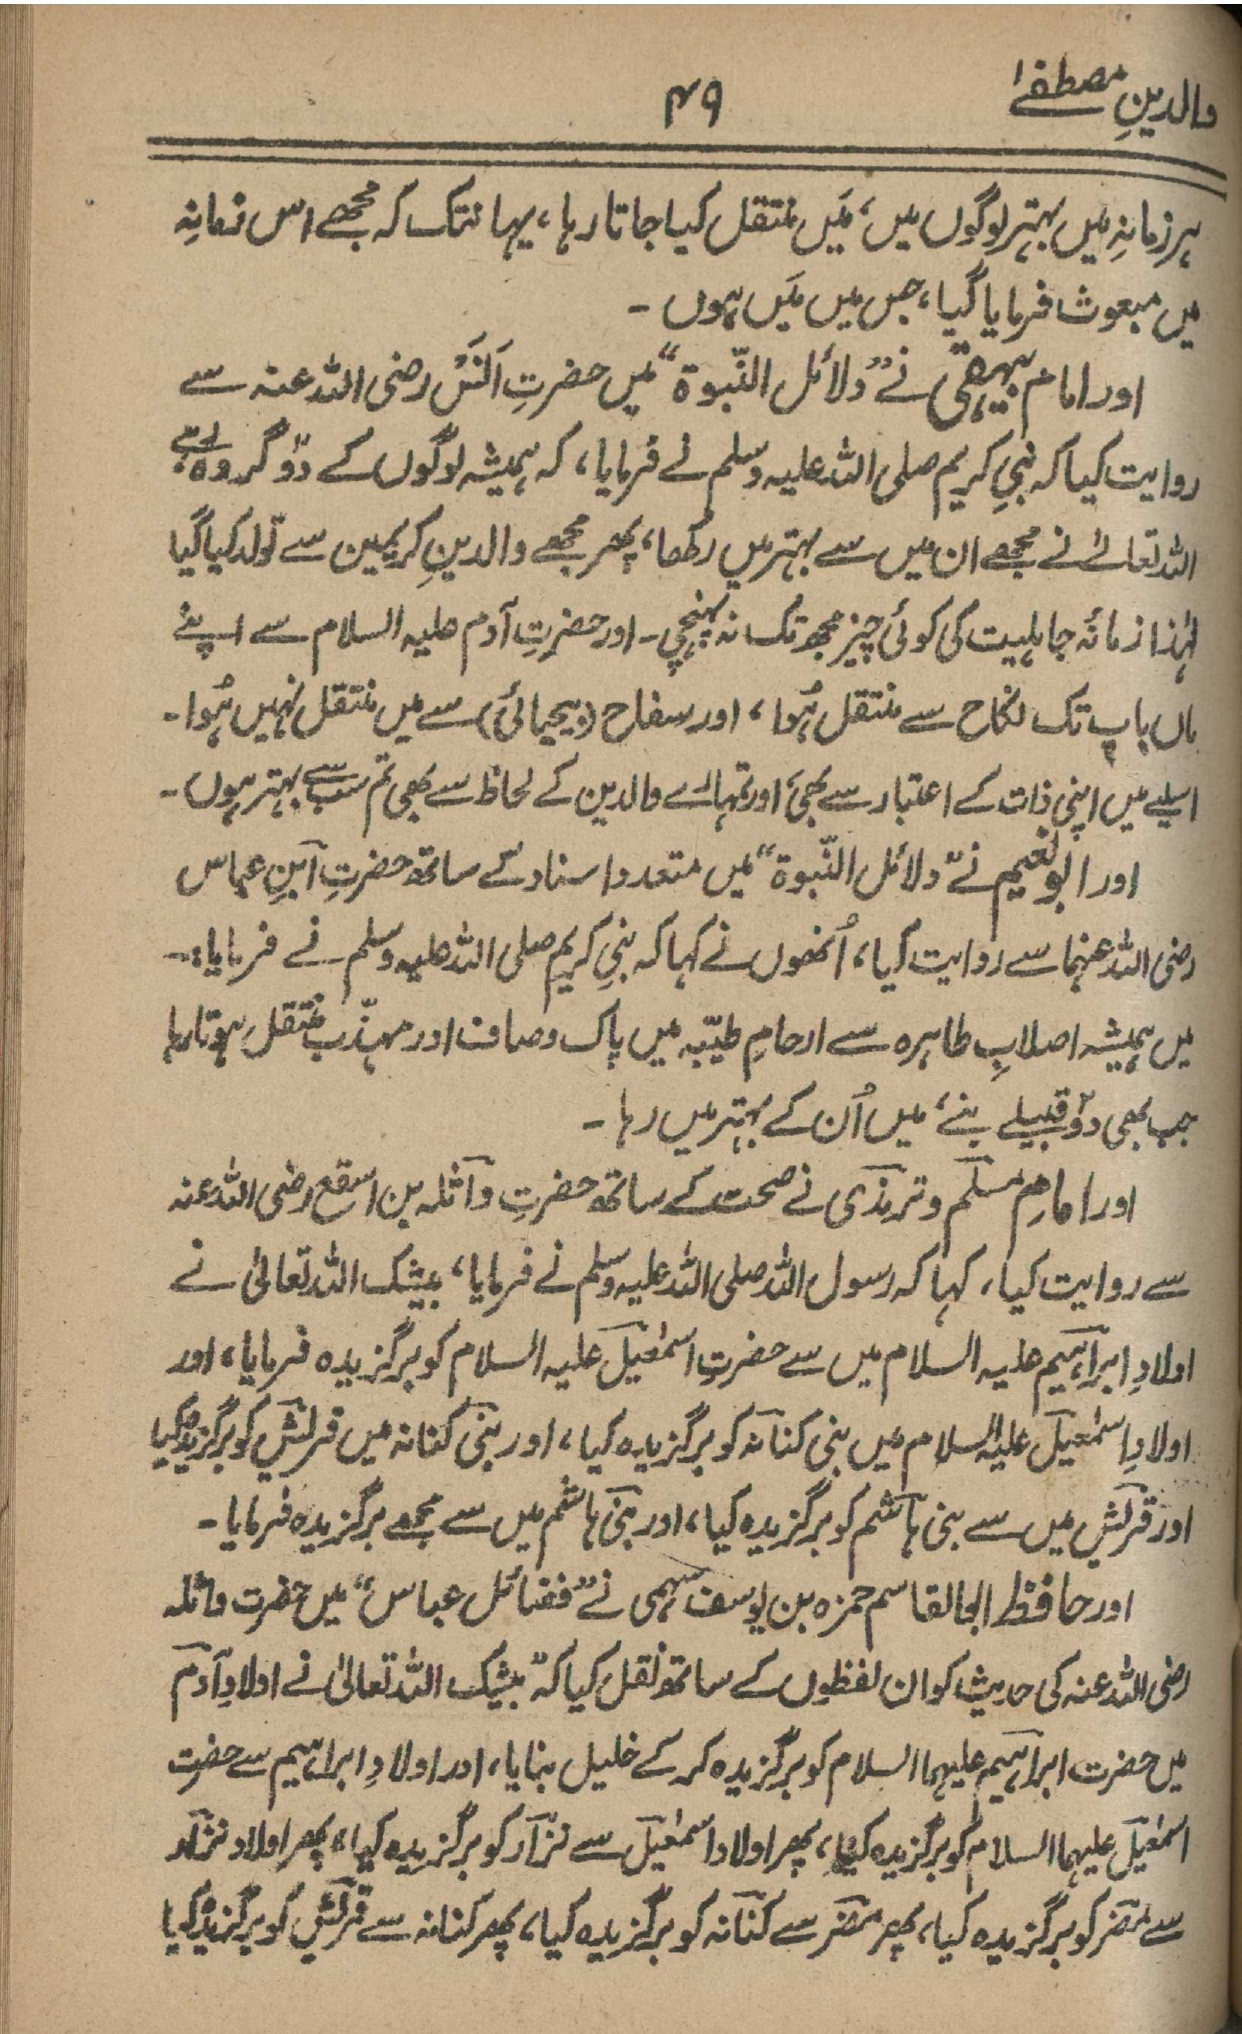 والدینِ مصطفےٰ
۴۹
ہر زمانہ میں بہتر لوگوں میں، مَیں منتقل کیا جاتا رہا، یہانتک کہ مجھے اس زمانہ
میں مبعوث فرمایا گیا، جس میں مَیں ہوں ۔
اور امام بیہقی نے ”دلائل النّبوة“ میں حضرتِ اَنَسْ رضی اللہ عنہ سے
روایت کیا کہ نبیِ کریم صلی اللہ علیہ وسلم نے فرمایا، کہ ہمیشہ لوگوں کے دو گروہ ہوئے،
اللہ تعالےٰ نے مجھے ان میں سے بہتر میں رکھا، پھر مجھے والدینِ کریمین سے تولد کیا گیا
لہٰذا زمانۂ جاہلیت کی کوئی چیز مجھ تک نہ پہنچی ۔ اور حضرتِ آدم علیہ السلام سے اپنے
ماں باپ تک نکاح سے منتقل ہُوا، اور سفاح (بیحیائی) سے میں منتقل نہیں ہُوا ۔
اسلیے میں اپنی ذات کے اعتبار سے بھی، اور تمہارے والدین کے لحاظ سے بھی تم سب سے بہتر ہوں ۔
اور ابونعیم نے ”دلائل النّبوة“ میں متعدد اسناد کے ساتھ حضرتِ ابنِ عباس
رضی اللہ عنہما سے روایت کیا، اُنھوں نے کہا کہ نبیِ کریم صلی اللہ علیہ وسلم نے فرمایا:۔
میں ہمیشہ اصلابِ طاہرہ سے ارحامِ طیّبہ میں پاک و صاف اور مہذّب منتقل ہوتا رہا
جب بھی دو قبیلے بنے، میں اُن کے بہتر میں رہا ۔
اور امامِ مسلم و ترمذی نے صحت کے ساتھ حضرتِ واثلہ بن اسقع رضی اللہ عنہ
سے روایت کیا، کہا کہ رسول اللہ صلی اللہ علیہ وسلم نے فرمایا، بیشک اللہ تعالیٰ نے
اولادِ ابراہیم علیہ السلام میں سے حضرتِ اسمٰعیل علیہ السلام کو برگزیدہ فرمایا، اور
اولادِ اسمٰعیل علیہ السلام میں بنی کنانہ کو برگزیدہ کیا، اور بنی کنانہ میں قریش کو برگزیدہ کیا
اور قریش میں سے بنی ہاشم کو برگزیدہ کیا، اور بنی ہاشم میں سے مجھے برگزیدہ فرمایا ۔
اور حافظ ابوالقاسم حمزہ بن یوسف سہمی نے ”فضائل عباس“ میں حضرت واثلہ
رضی اللہ عنہ کی حدیث کو ان لفظوں کے ساتھ نقل کیا کہ ”بیشک اللہ تعالیٰ نے اولادِ آدم
میں حضرت ابراہیم علیہما السلام کو برگزیدہ کر کے خلیل بنایا، اور اولادِ ابراہیم سے حضرت
اسمٰعیل علیہما السلام کو برگزیدہ کیا، پھر اولاد اسمٰعیل سے نزار کو برگزیدہ کیا، پھر اولاد نزار
سے مضر کو برگزیدہ کیا، پھر مضر سے کنانہ کو برگزیدہ کیا، پھر کنانہ سے قریش کو برگزیدہ کیا